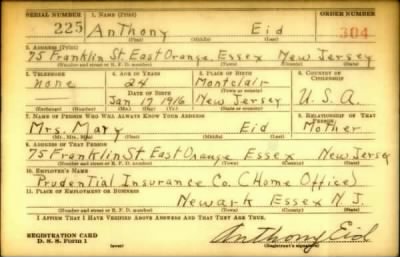 SERIAL NUMBER 1. NAME (Print) ORDER NUMBER
225 Anthony Eid 304
(First) (Middle) (Last)
2. ADDRESS (Print)
75 Franklin St. East Orange, Essex New Jersey
(Number and street or R. F. D. number) (Town) (County) (State)
3. TELEPHONE 4. AGE IN YEARS 5. PLACE OF BIRTH 6. COUNTRY OF CITIZENSHIP
none 24 Montclair
DATE OF BIRTH (Town or county)
Jan 17 1916 New Jersey U.S.A.
(Mo.) (Day) (Yr.) (State or country)
7. NAME OF PERSON WHO WILL ALWAYS KNOW YOUR ADDRESS 8. RELATIONSHIP OF THAT PERSON
Mrs. Mary Eid Mother
(Mr., Mrs., Miss) (First) (Middle) (Last)
9. ADDRESS OF THAT PERSON
75 Franklin St East Orange Essex New Jersey
(Number and street or R. F. D. number) (Town) (County) (State)
10. EMPLOYER'S NAME
Prudential Insurance Co. (Home Office)
11. PLACE OF EMPLOYMENT OR BUSINESS
Newark Essex N.J.
(Number and street or R. F. D. number) (Town) (County) (State)
I AFFIRM THAT I HAVE VERIFIED ABOVE ANSWERS AND THAT THEY ARE TRUE.
REGISTRATION CARD
D. S. S. Form 1 (over) Anthony Eid
(Registrant's signature)